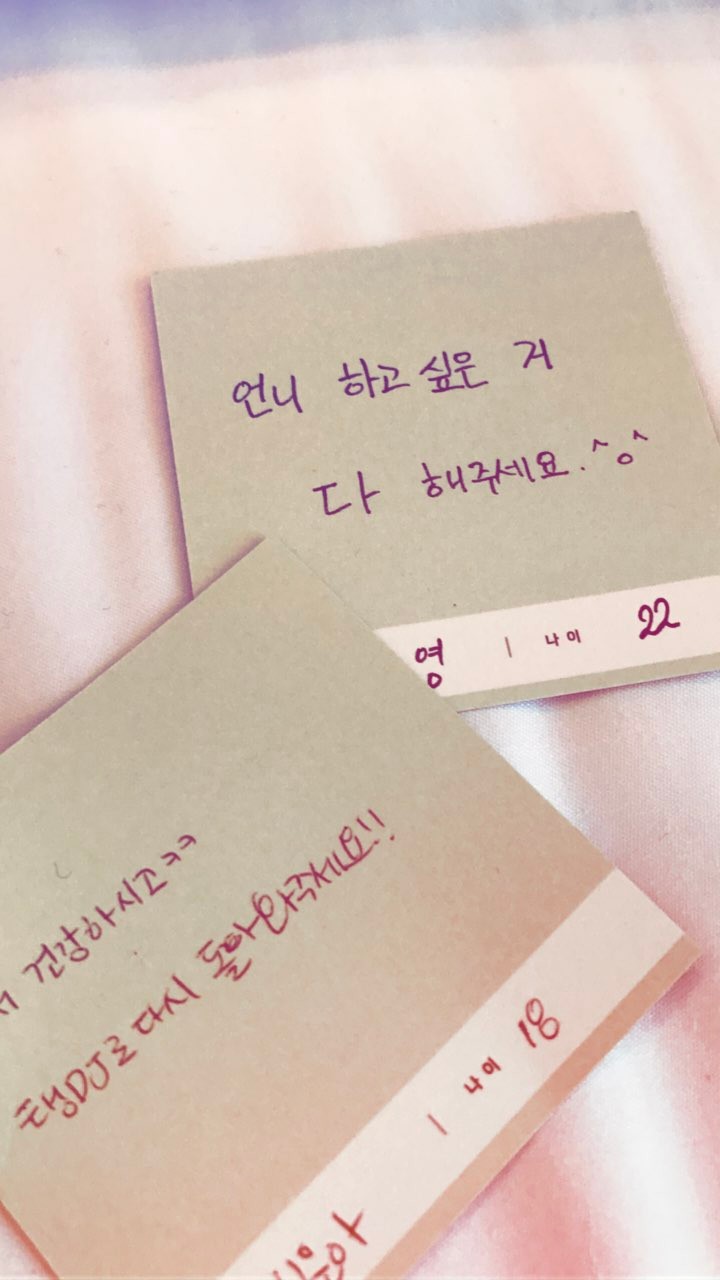 언니 하고싶은 거
다 해주세요.^o^
영 | 나이 22
건강하시고ㅋㅋ
탱DJ로 다시 돌아와주세요!!
| 나이 18